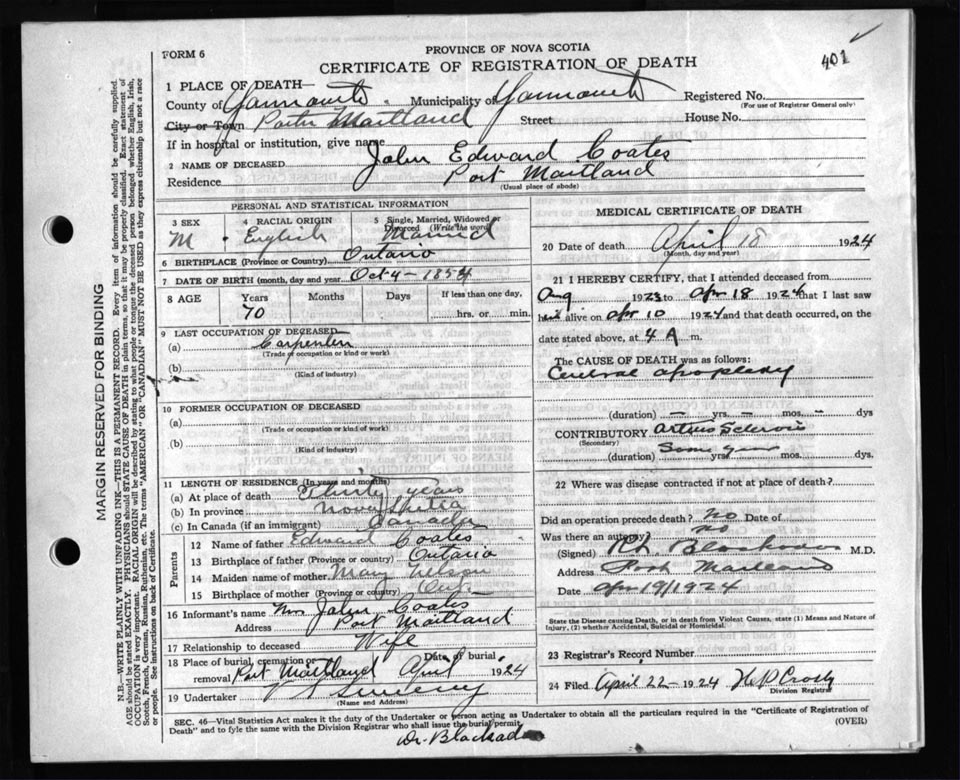 401
FORM 6
PROVINCE OF NOVA SCOTIA
CERTIFICATE OF REGISTRATION OF DEATH
1 PLACE OF DEATH—
County of Yarmouth Municipality of Yarmouth
Registered No.
(For use of Registrar General only)
City or Town Port Maitland Street House No.
If in hospital or institution, give name
2 NAME OF DECEASED John Edward Coates
Residence Port Maitland
(Usual place of abode)
PERSONAL AND STATISTICAL INFORMATION
3 SEX M
4 RACIAL ORIGIN English
5 Single, Married, Widowed or Divorced (Write the word) Married
6 BIRTHPLACE (Province or Country) Ontario
7 DATE OF BIRTH (month, day and year) Oct 4 - 1854
8 AGE Years Months Days If less than one day,
70 hrs. or min.
9 LAST OCCUPATION OF DECEASED
(a) Carpenter
(Trade or occupation or kind or work)
(b)
(Kind of industry)
10 FORMER OCCUPATION OF DECEASED
(a)
(Trade or occupation or kind or work)
(b)
(Kind of industry)
11 LENGTH OF RESIDENCE (In years and months)
(a) At place of death Thirty years
(b) In province Nova Scotia
(c) In Canada (if an immigrant) Canada
Parents
12 Name of father Edward Coates
13 Birthplace of father (Province or country) Ontario
14 Maiden name of mother May Nelson
15 Birthplace of mother (Province or country) Ont.
16 Informant's name Mrs John Coates
Address Port Maitland
17 Relationship to deceased Wife
18 Place of burial, cremation or removal Port Maitland Date of burial, April 1924
19 Undertaker Sweeny
(Name and Address)
MEDICAL CERTIFICATE OF DEATH
20 Date of death April 18 1924
(Month, day and year)
21 I HEREBY CERTIFY, that I attended deceased from
Aug 1923 to Apr 18 1924 that I last saw
him alive on Apr 10 1924 and that death occurred, on the
date stated above, at 4 A m.
The CAUSE OF DEATH was as follows:
apoplexy
(duration) — yrs. — mos. — dys
CONTRIBUTORY Sclerosis
(Secondary)
(duration) Some years yrs. mos. dys.
22 Where was disease contracted if not at place of death?
Did an operation precede death? no Date of
Was there an autopsy no
(Signed) M.D.
Address Port Maitland
Date Apr 19/1924
State the Disease causing Death, or in death from Violent Causes, state (1) Means and Nature of Injury, (2) whether Accidental, Suicidal or Homicidal.
23 Registrar's Record Number
24 Filed April 22 - 1924 H P Crosby
Division Registrar
SEC. 46—Vital Statistics Act makes it the duty of the Undertaker or person acting as Undertaker to obtain all the particulars required in the "Certificate of Registration of
Death" and to fyle the same with the Division Registrar who shall issue the burial permit.
(OVER)
MARGIN RESERVED FOR BINDING
N.B.—WRITE PLAINLY WITH UNFADING INK—THIS IS A PERMANENT RECORD. Every item of information should be carefully supplied.
AGE should be stated EXACTLY. PHYSICIANS should STATE CAUSE OF DEATH in plain terms, so that it may be properly classified. Exact statement of
OCCUPATION is very important. RACIAL ORIGIN will be described by stating to what people or tongue the deceased person belonged whether English, Irish,
Scotch, French, German, Russian, Ruthenian, etc. The terms "AMERICAN" OR "CANADIAN" MUST NOT BE USED as they express citizenship but not a race
or people. See instructions on back of Certificate.